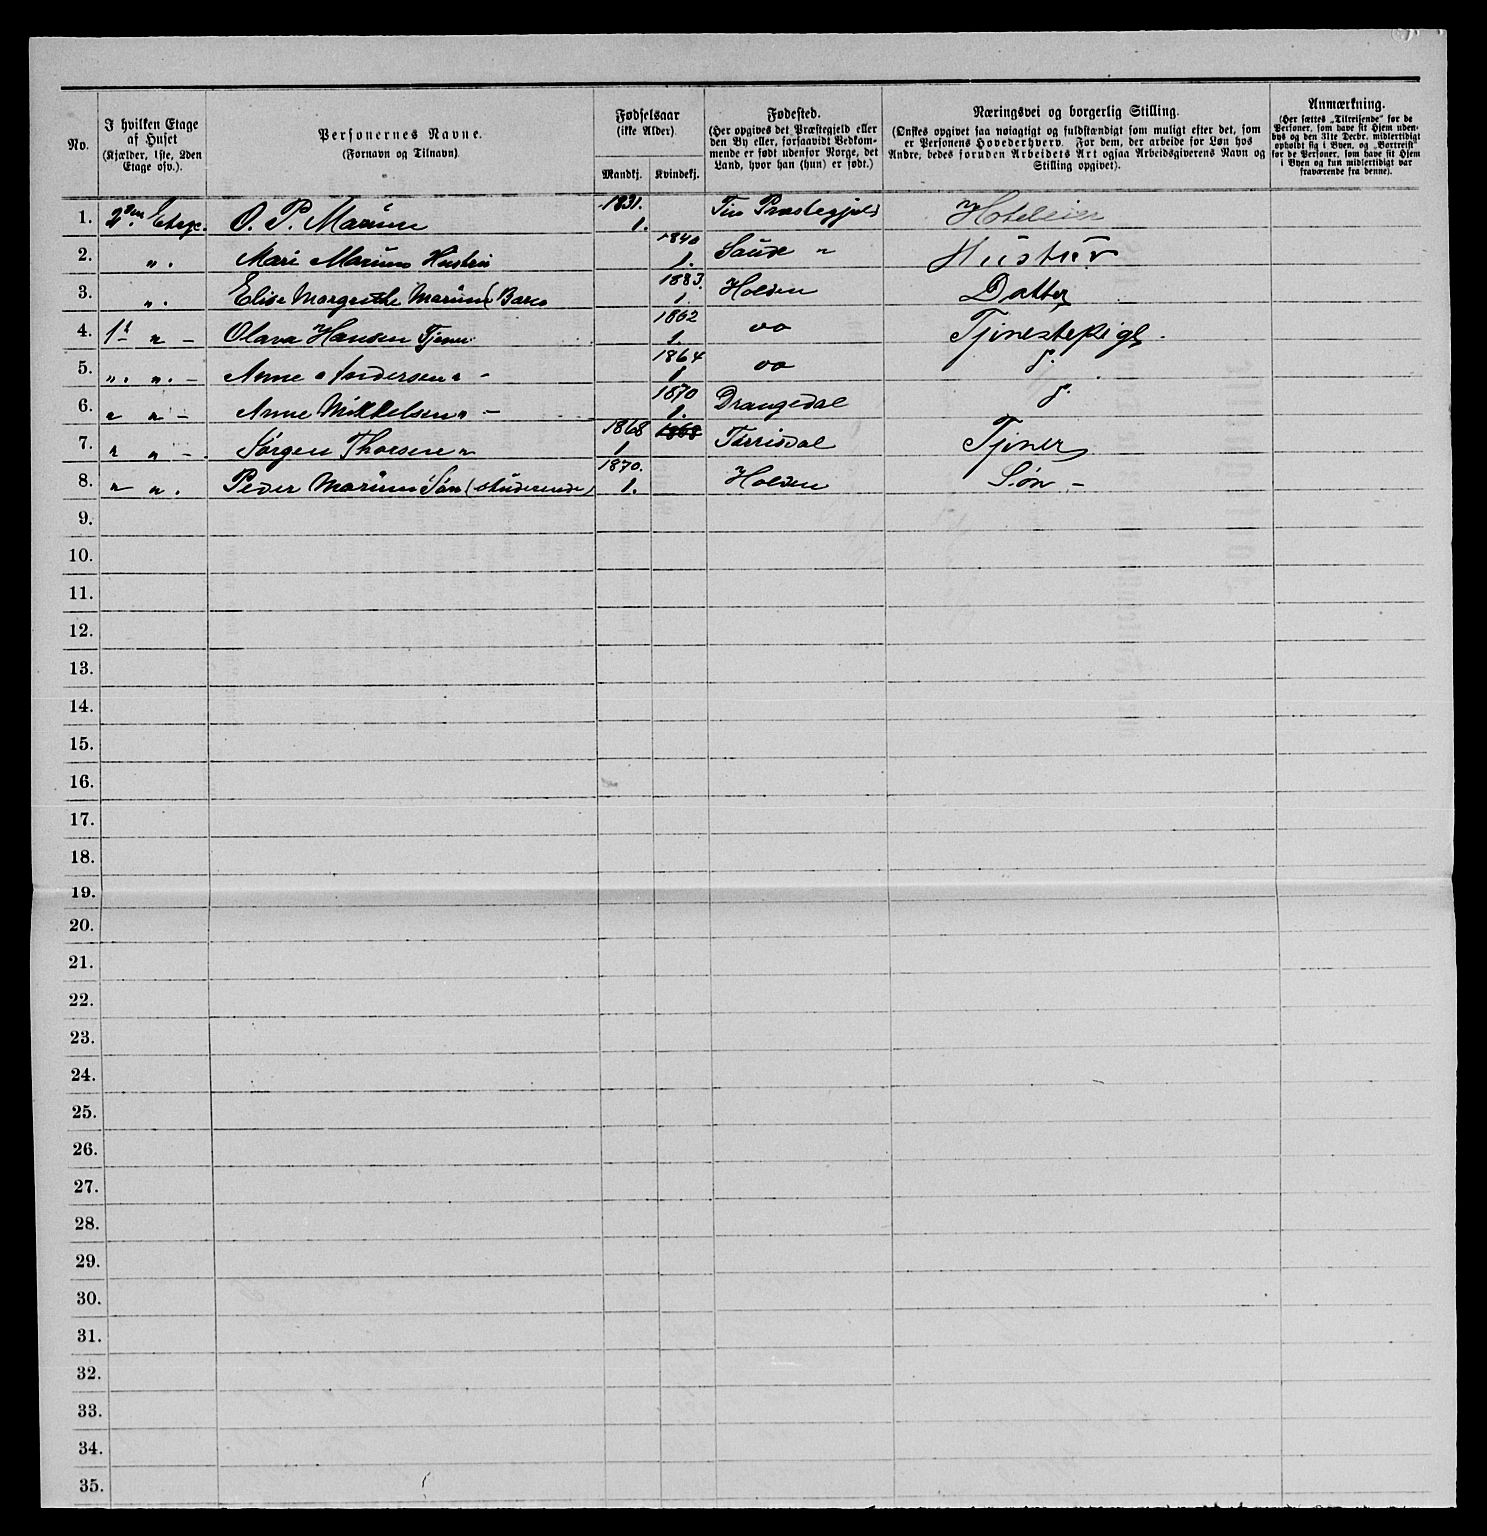 No.
I hvilken Etage af Huset (Kjælder, 1ste, 2den Etage osv.).
Personernes Navne. (Fornavn og Tilnavn)
Fødselsaar (ikke Alder)
Mandkj. Kvindekj.
Fødested. (Her opgives det Præstegjeld eller den By eller, forsaavidt Vedkommende er født udenfor Norge, det Land, hvor han (hun) er født.)
Næringsvei og borgerlig Stilling. (Ønskes opgivet saa nøiagtigt og fuldstændigt som muligt efter det, som er Personens Hovederhverv. For dem, der arbeide for Løn hos Andre, bedes foruden Arbeidets Art ogsaa Arbeidsgiverens Navn og Stilling opgivet).
Anmærkning. (Her sættes „Tilreisende“ for de Personer, som have sit Hjem udenbys og den 31te Decbr. midlertidigt opholdt sig i Byen, og „Bortreist“ for de Personer, som have sit Hjem i Byen og kun midlertidigt var fraværende fra denne).
1. 2den Etage. O. P. Marum 1831. 1. Tin Præstegjeld Hoteleier
2. ". Mari Marum Hustru 1840 1. Saude " Hustru
3. ". Elise Margrethe Marum (Barn 1883. 1 Holden Datter
4. 1ste " - Olava Hansen Tjener 1862 1. do Tjenestepige.
5. ". ". - Anne Andersen " - 1864 1 do d.
6. " " - Anne Mikkelsen " - 1870 1. Drangedal d.
7. " " - Jørgen Thorsen " 1868 1 1868 Tørrisdal Tjener
8. " ". Peder Marum Søn (studerende) 1870. 1. Holden Søn -
9.
10.
11.
12.
13.
14.
15.
16.
17.
18.
19.
20.
21.
22.
23.
24.
25.
26.
27.
28.
29.
30.
31.
32.
33.
34.
35.